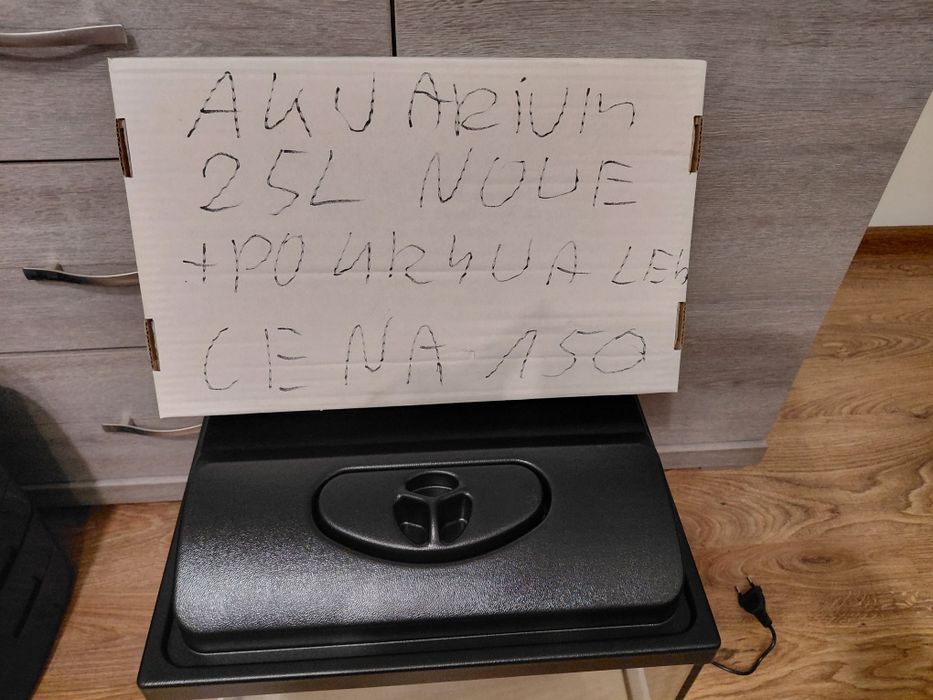 AKVARIUM
25L NOVE
+PO KRYVA LED
CENA-150